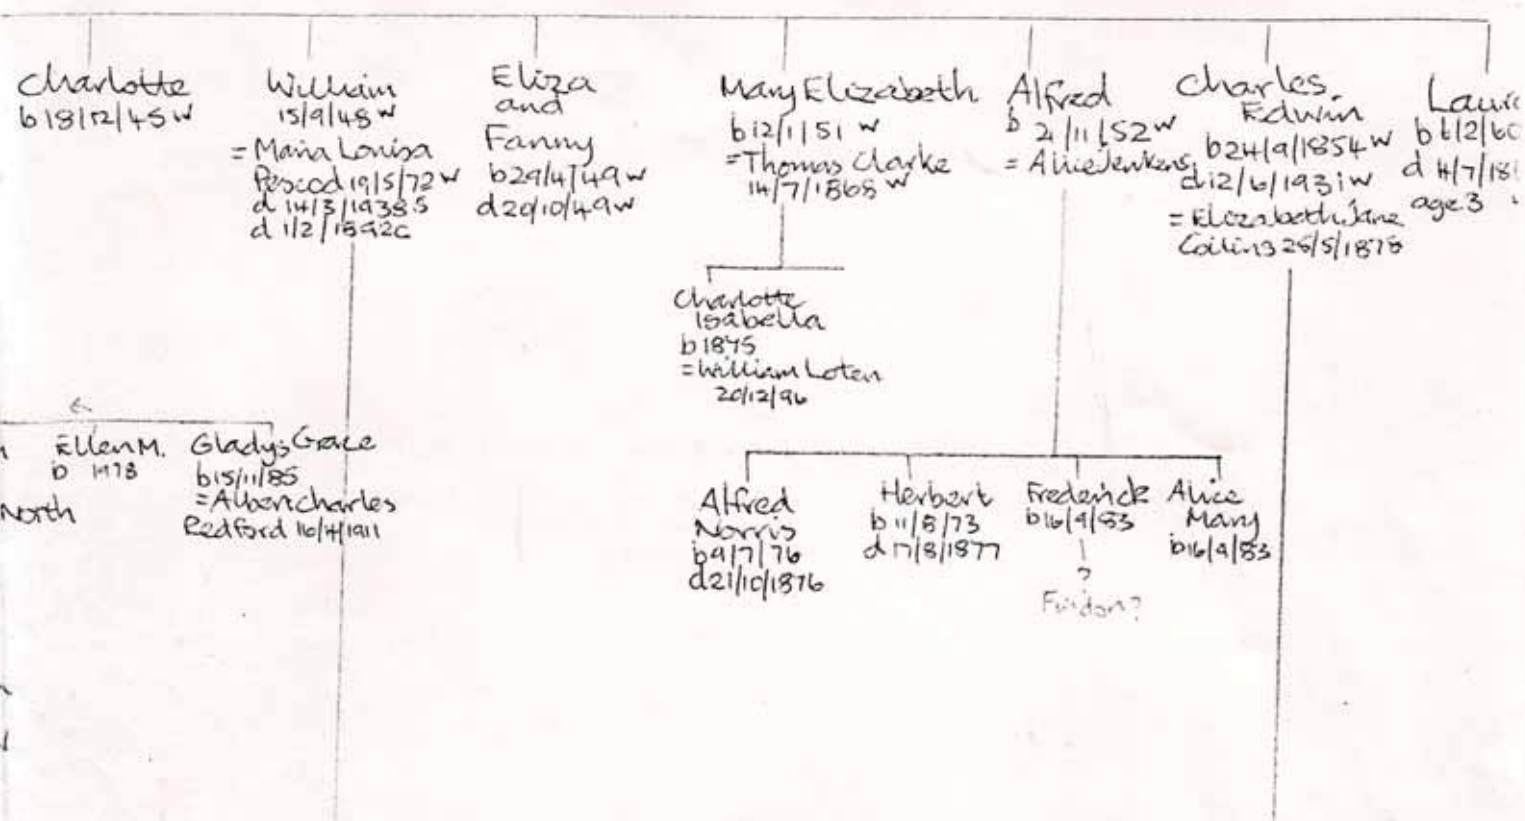 Charlotte
b 18/12/45 w
William
15/9/48 w
= Maria Louisa
Pescod 19/5/72 w
d 14/3/1938 S
d 1/2/1892 C
Eliza
and
Fanny
b 29/4/49 w
d 20/10/49 w
Mary Elizabeth
b 12/1/51 w
= Thomas Clarke
14/7/1868 w
Alfred
b 21/11/52 w
= Alice Jenkens
Charles
Edwin
b 24/9/1854 w
d 12/6/1931 w
= Elizabeth Jane
Collins 25/5/1878
age 3
Charlotte
Isabella
b 1875
= William Loten
20/12/96
Ellen M.
b
North
Gladys Grace
b 15/11/85
= Albert Charles
Redford 16/4/1911
Alfred
Norris
b 9/7/76
d 21/10/1876
Herbert
b 11/8/73
d 17/8/1877
Frederick
b 16/9/83
?
Findon?
Alice
Mary
b 16/9/83